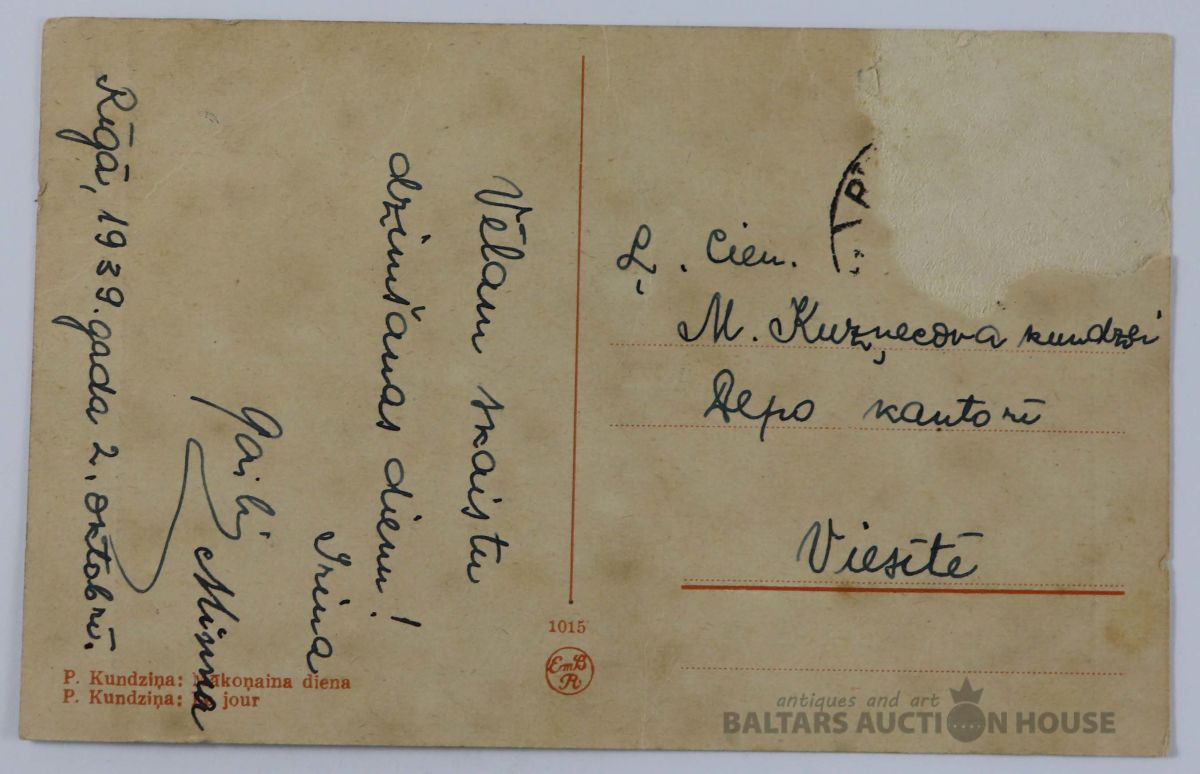 Vēlam skaistu
dzimšanas dienu!
Irina
Minna
Rīgā, 1939. gada 2. oktobrī.
Cien.
M. Kuzņecova kundzei
Depo kantorī
Viesītē
1015
EmB
R
P. Kundziņa: Mākoņaina diena
P. Kundziņa: jour
antiques and art
BALTARS AUCTION HOUSE